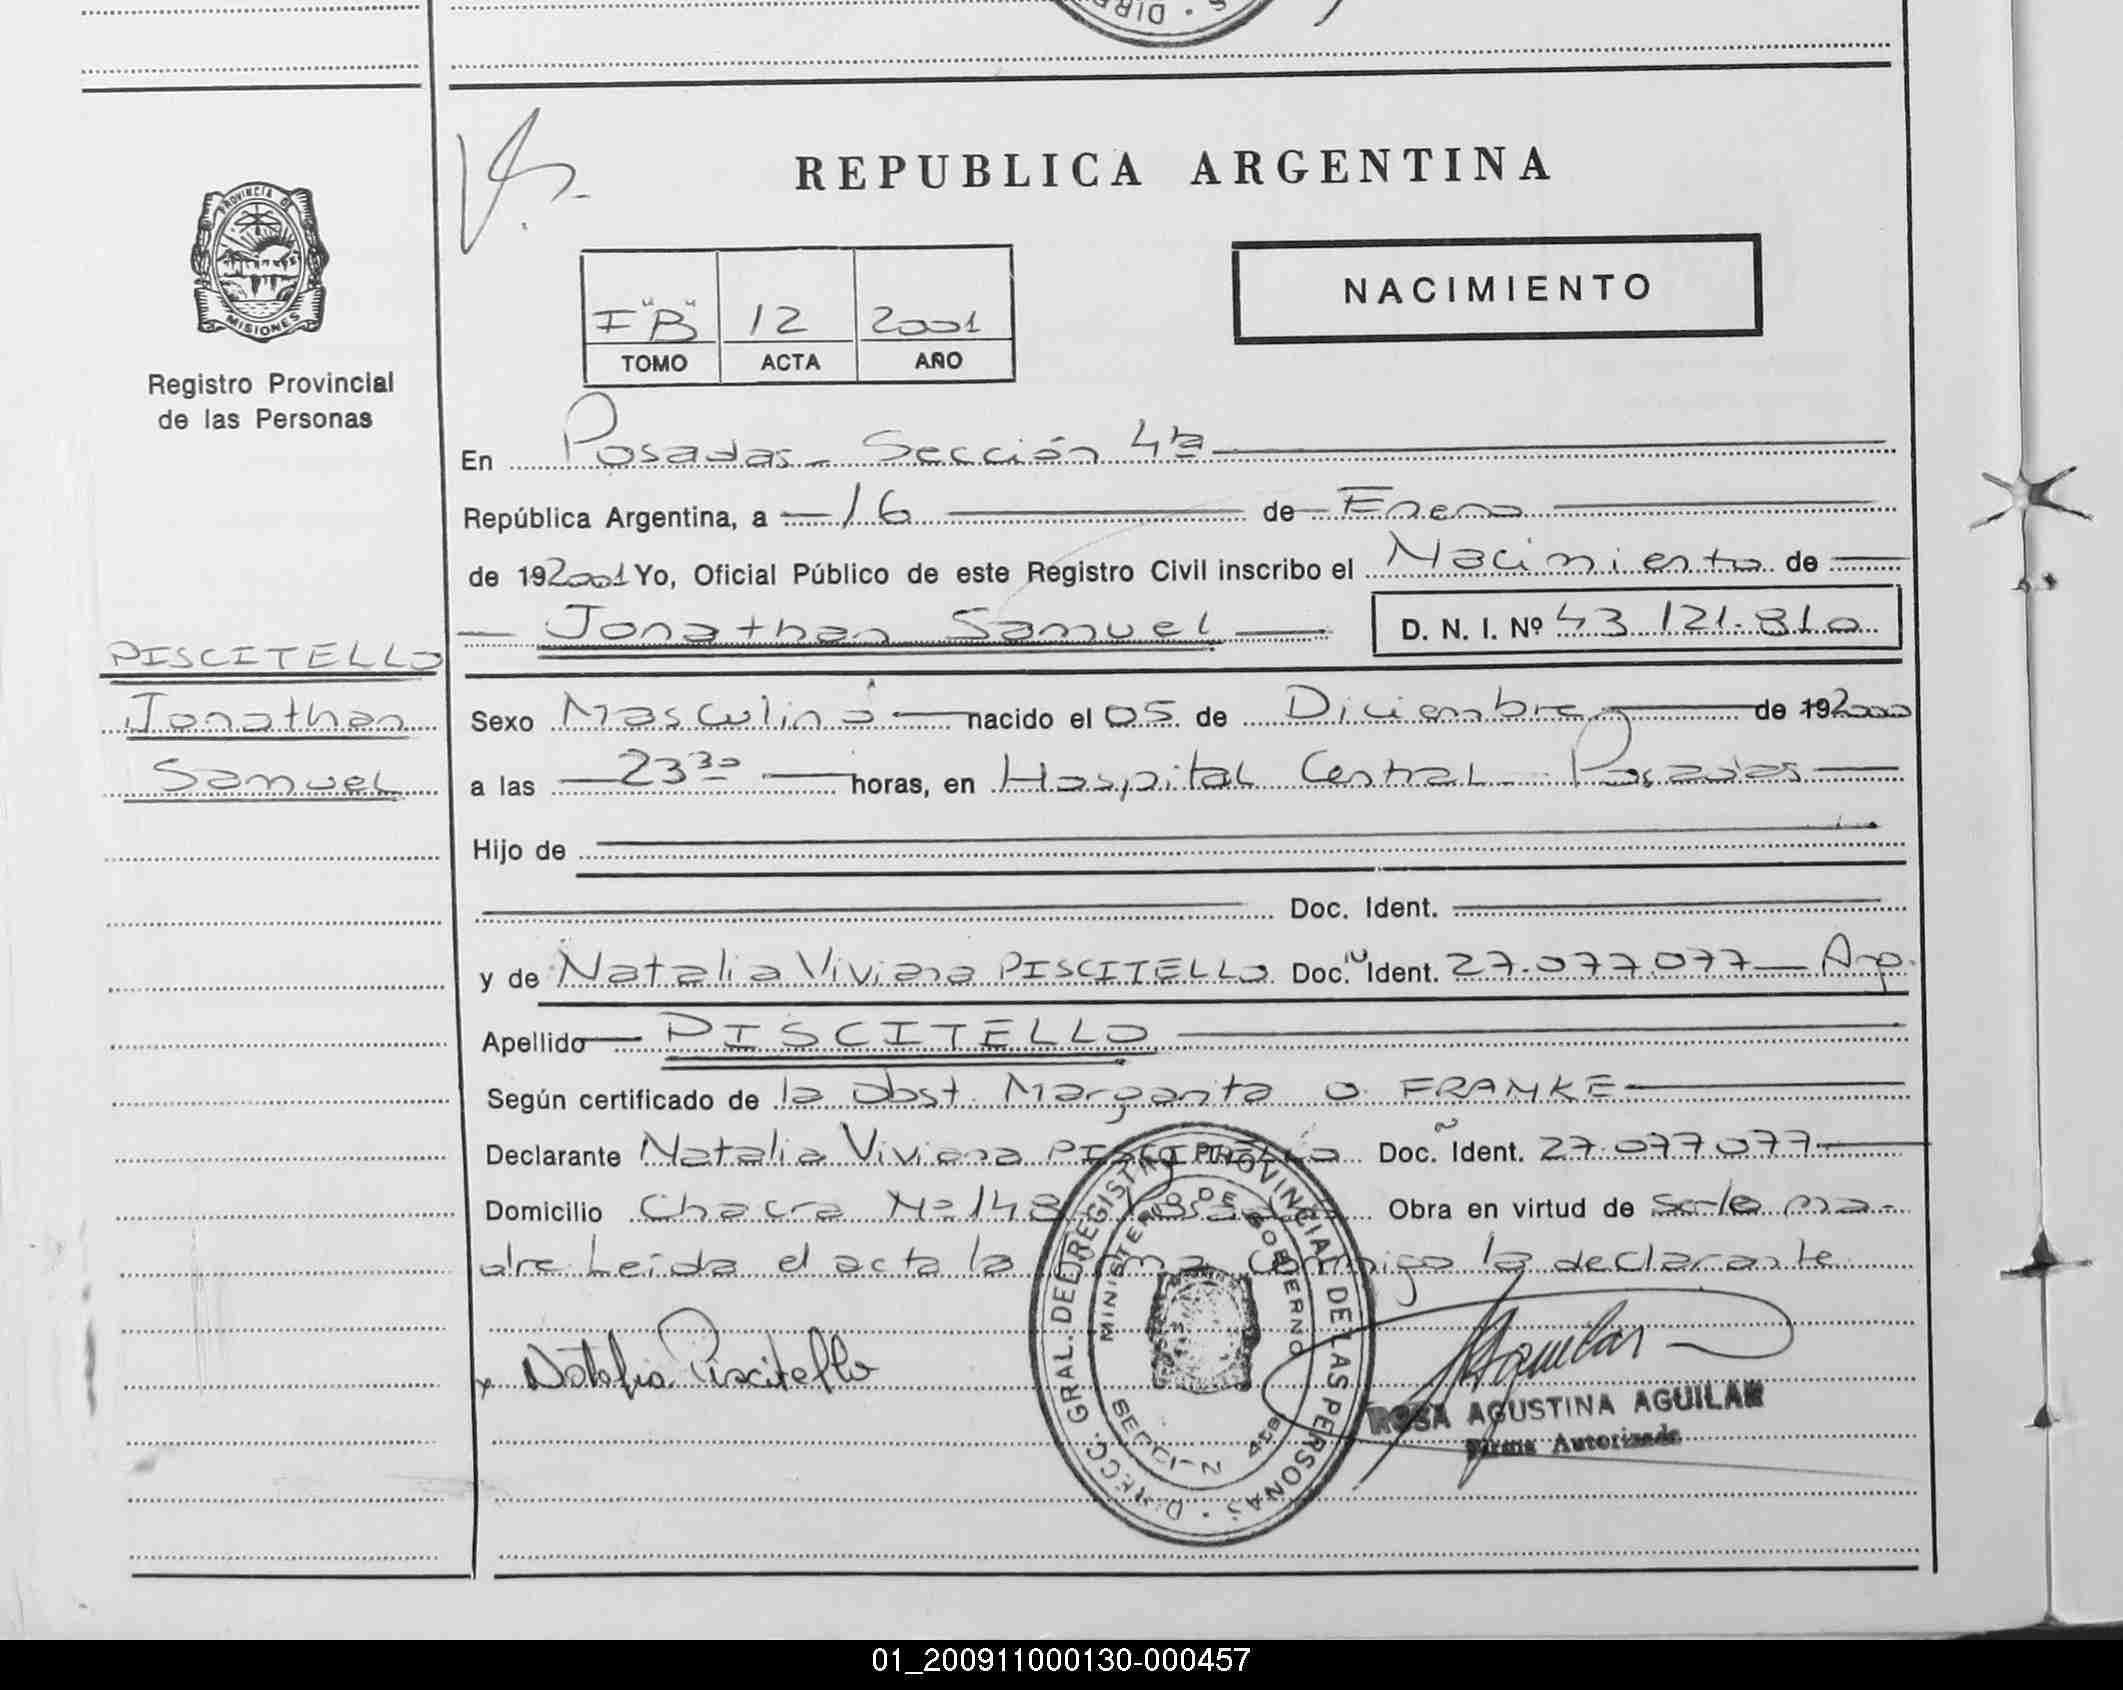 DIRE
REPUBLICA ARGENTINA
PROVINCIA D
MISIONES
Registro Provincial
de las Personas
NACIMIENTO
I "B" 12 2001
TOMO ACTA AÑO
En Posadas - Sección 4ta
República Argentina, a 16 de Enero
de 192001 Yo, Oficial Público de este Registro Civil inscribo el Nacimiento de
Jonathan Samuel D. N. I. Nº 43 121.810
PISCITELLO
Jonathan
Samuel
Sexo Masculino nacido el 05 de Diciembre de 192000
a las 23 30 horas, en Hospital Central - Posadas
Hijo de
Doc. Ident.
y de Natalia Viviana PISCITELLO Doc. Ident. 27.077.077 - Arg.
Apellido PISCITELLO
Según certificado de la Obst. Margarita O. FRANKE
Declarante Natalia Viviana PISCITELLO Doc. Ident. 27.077077
Domicilio Chacra Nº 148 Posadas Obra en virtud de ser la ma-
dre Leida el acta la firma conmigo la declarante
x Natalia Piscitello
Aguilar
ROSA AGUSTINA AGUILAR
Firma Autorizada
DIRECC. GRAL. DEL REGISTRO PROVINCIAL DE LAS PERSONAS
MINISTERIO DE GOBIERNO
SECCION 4ta
01_200911000130-000457